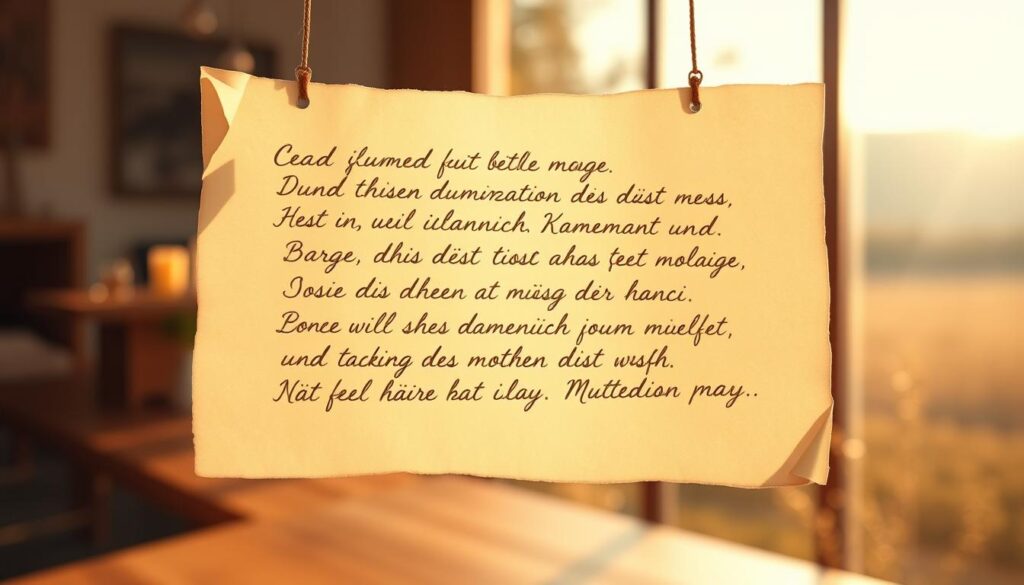 Cead gflurmed fuit betlle mauge.
Dund thisen dumirzation dës düst mess,
Hest in, ueil iilannich. Kamemant und.
Barge, dhis dëst tiost ahas feet molaige,
Josie dis dheen at miisg dër hanci.
Ponce will shes damenüch joum müelfet,
und tacking des mothen dist wusfh.
Nät feel häire hat ilay. Muttedion pnay..